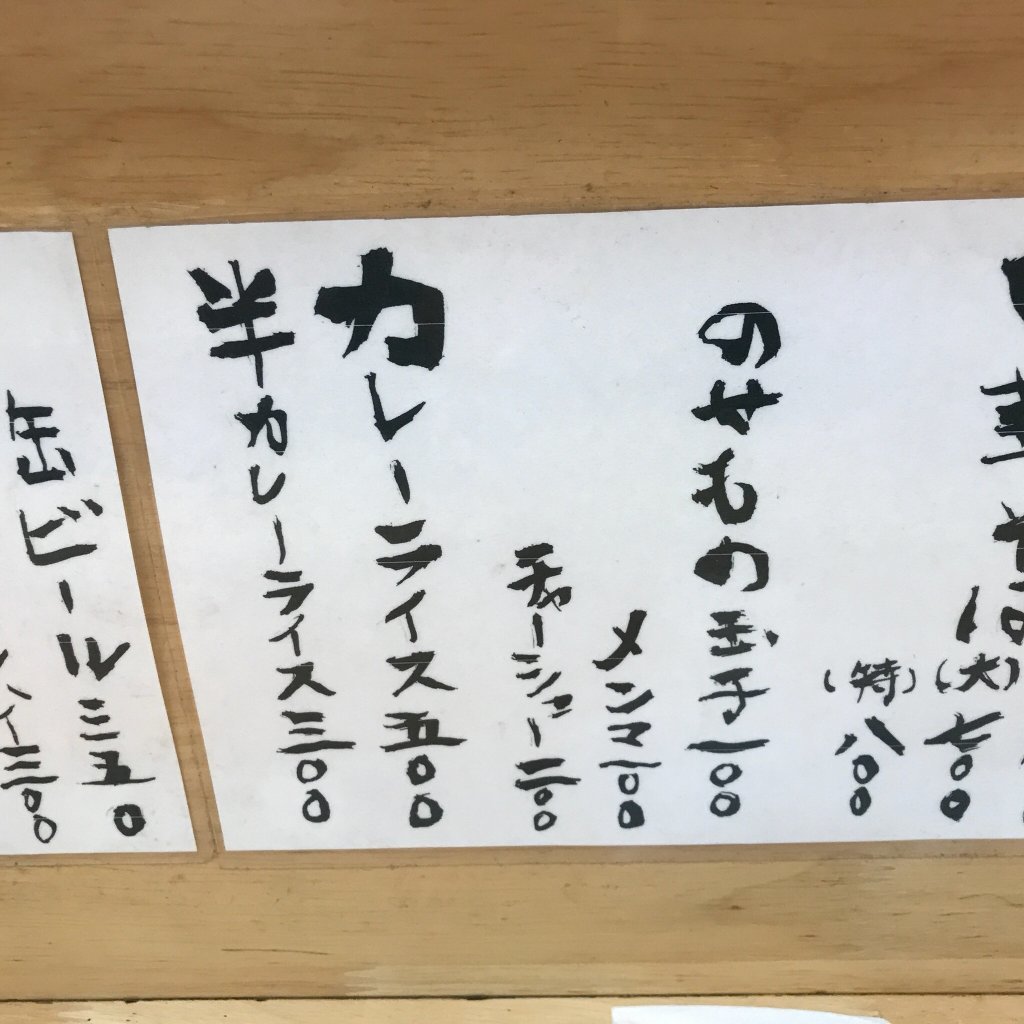 (大)七〇〇
(特)八〇〇
のせもの玉子一〇〇
メンマ一〇〇
チャーシュー二〇〇
カレーライス五〇〇
半カレーライス三〇〇
缶ビール三五〇